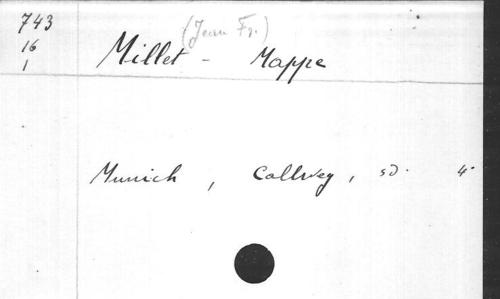 743
16
1
(Jean Fr.)
Millet - Mappe
Munich, Callwey, sd. 4°